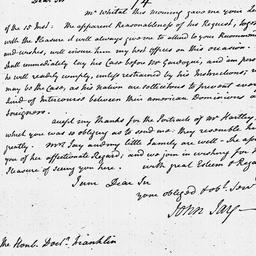 Dear Sir
Mr Whital this morning gave me your
of the 15 Inst. The apparent Reasonableness of his Request, toge
with the Pleasure it will always give me to attend to your Recommen
and wishes, will ensure him my best offices on this occasion.
shall immediately lay his Case before Mr Gardoqui, and am pers
he will readily comply, unless restrained by his Instructions; w
may be the Case, as his nation are sollicitous to prevent every
kind of Intercourse between their american Dominions a
Foreigners.
accept my thanks for the Portraits of Mr Hartley
which you was so obliging as to send me. They resemble h
greatly. Mrs Jay and my little Family are well. She
you of her affectionate Regard; and we join in wishing for
Pleasure of seeing you here. with great Esteem & Rega
I am Dear Sir
your obliged & obt. Serv
John Jay—
The Honb. Doctr. Franklin